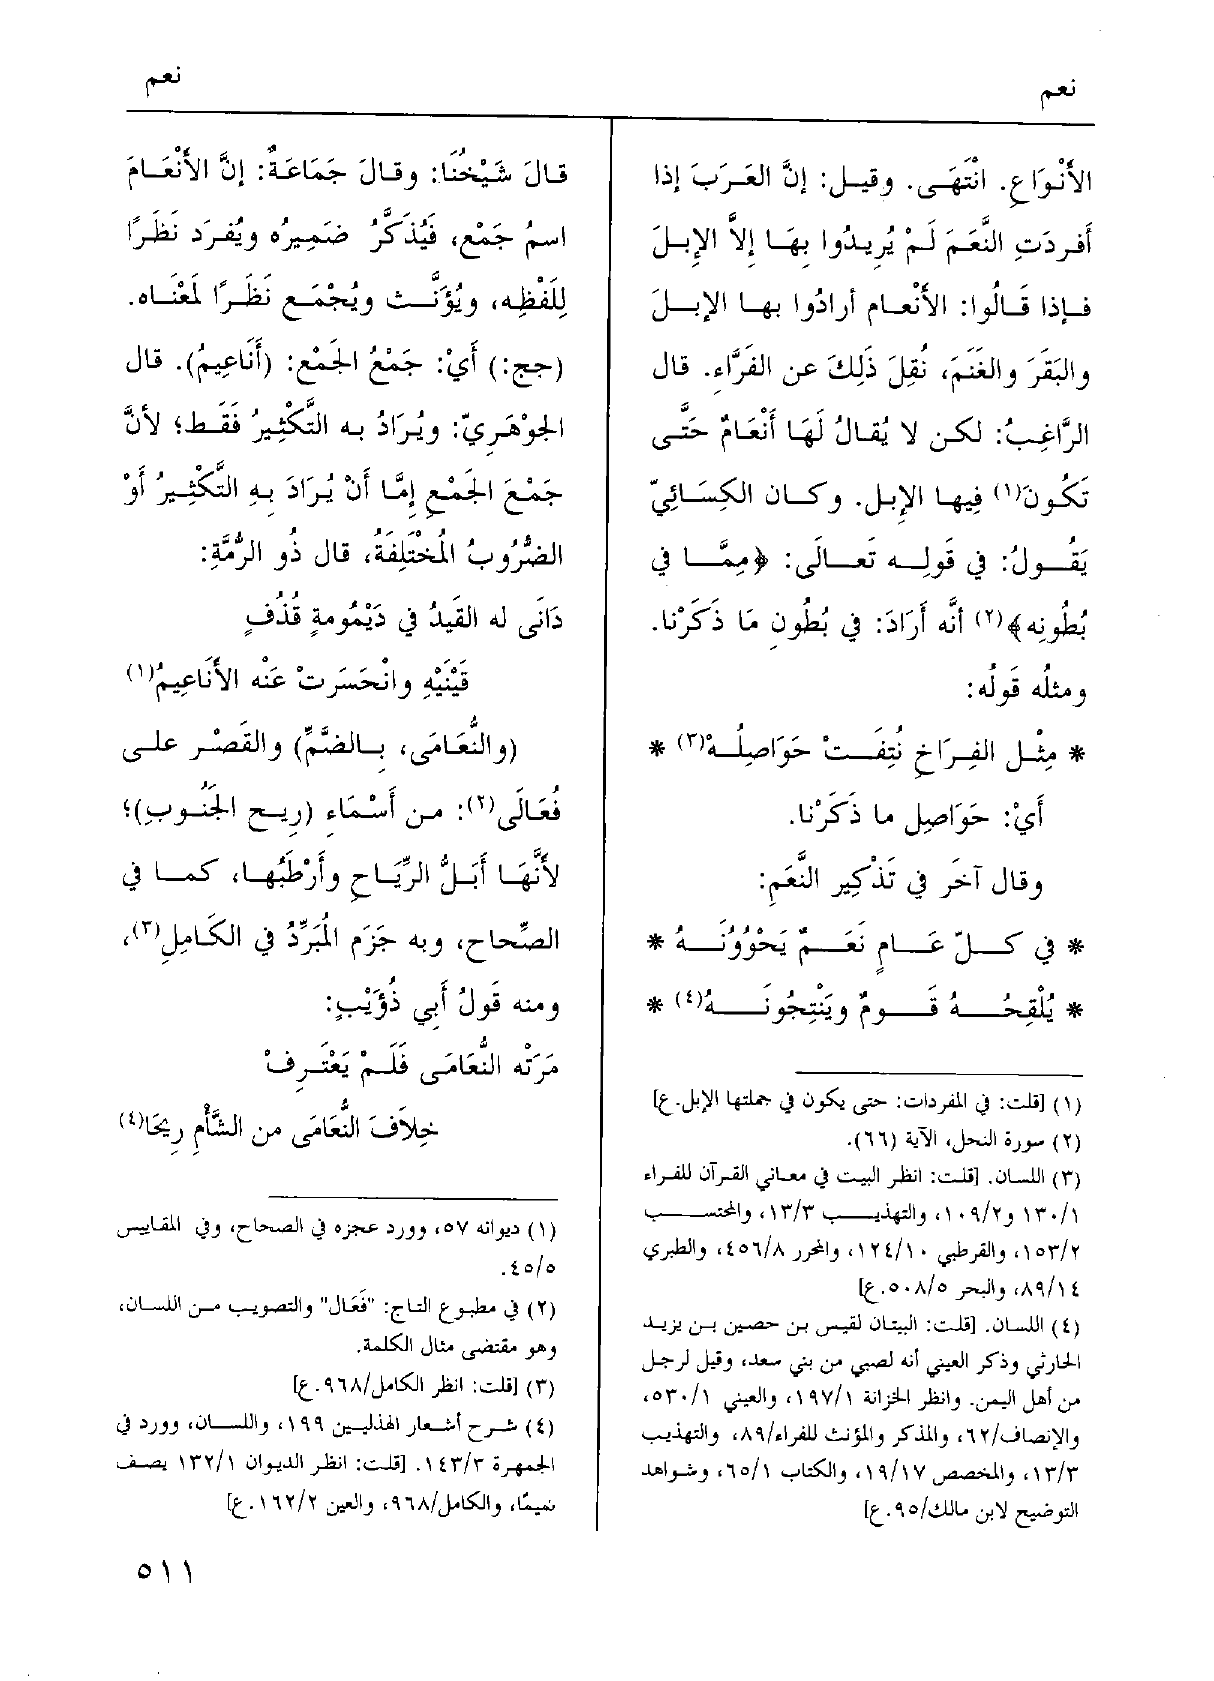 نعم
نعم
الأَنْوَاعِ. انْتَهَى. وقيل: إنَّ العَرَبَ إذا
أَفردَتِ النَّعَمَ لَمْ يُرِيدُوا بِهَا إلاَّ الإِبلَ
فإذا قَالُوا: الأَنْعام أرادُوا بها الإبلَ
والبَقَرَ والغَنَمَ، نُقِلَ ذَلِكَ عن الفَرَّاءِ. قال
الرَّاغِبُ: لكن لا يُقالُ لَهَا أَنْعَامٌ حَتَّى
تَكُونَ(١) فِيها الإبل. وكان الكِسَائِيّ
يَقُولُ: في قَولِه تَعالَى: ﴿مِمَّا في
بُطُونِه﴾(٢) أنَّه أَرَادَ: في بُطُونِ مَا ذَكَرْنا.
ومثلُه قَولُه:
* مِثْل الفِرَاخِ نُتِفَتْ حَوَاصِلُهْ(٣) *
أَيْ: حَوَاصِل ما ذَكَرْنا.
وقال آخَر في تَذْكِيرِ النَّعَمِ:
* في كلّ عَامٍ نَعَمٌ يَحْوُونَهُ *
* يُلْقِحُهُ قَومٌ ويَنْتِجُونَهُ(٤) *
(١) [قلت: في المفردات: حتى يكون في جملتها الإبل.ع]
(٢) سورة النحل، الآية (٦٦).
(٣) اللسان. [قلت: انظر البيت في معاني القرآن للفراء
١٣٠/١ و١٠٩/٢، والتهذيب ١٣/٣، والمحتسب
١٥٣/٢، والقرطبي ١٢٤/١٠، والمحرر ٤٥٦/٨، والطبري
٨٩/١٤، والبحر ٥٠٨/٥.ع]
(٤) اللسان. [قلت: البيتان لقيس بن حصين بن يزيد
الحارثي وذكر العيني أنه لصبي من بني سعد، وقيل لرجل
من أهل اليمن. وانظر الخزانة ١٩٧/١، والعيني ٥٣٠/١،
والإنصاف/٦٢، والمذكر والمؤنث للفراء/٨٩، والتهذيب
١٣/٣، والمخصص ١٩/١٧، والكتاب ٦٥/١، وشواهد
التوضيح لابن مالك/٩٥.ع]
قالَ شَيْخُنَا: وقالَ جَمَاعَةٌ: إنَّ الأَنْعَامَ
اسمُ جَمْعٍ، فَيُذَكَّرُ ضَمِيرُه ويُفرَد نَظَرًا
لِلَفْظِه، ويُؤَنَّث ويُجْمَع نَظَرًا لمَعْنَاه.
(جج:) أَيْ: جَمْعُ الجَمْعِ: (أَنَاعِيمُ). قال
الجوْهَرِيّ: ويُرَادُ به التَّكْثِيرُ فَقَط؛ لأنَّ
جَمْعَ الجَمْعِ إمَّا أَنْ يُرَادَ بِهِ التَّكْثِيرُ أَوْ
الضُّرُوبُ المُخْتَلِفَةُ، قال ذُو الرُّمَّةِ:
دَانَى له القَيدُ في دَيْمُومةٍ قُذُفٍ
قَيْنَيْهِ وانْحَسَرتْ عَنْه الأَنَاعِيمُ(١)
(والنُّعَامَى، بالضَّمِّ) والقَصْر على
فُعَالَى(٢): من أَسْمَاءِ (رِيحِ الجَنُوبِ)؛
لأَنَّهَا أَبَلُّ الرِّيَاحِ وأَرْطَبُها، كما في
الصِّحاحِ، وبه جَزَم المُبَرِّدُ في الكَامِلِ(٣)،
ومنه قَولُ أَبِي ذُؤَيْبٍ:
مَرَتْه النُّعَامَى فَلَمْ يَعْتَرِفْ
خِلاَفَ النُّعَامَى من الشَّأْمِ رِيحَا(٤)
(١) ديوانه ٥٧، وورد عجزه في الصحاح، وفي المقاييس
٤٥/٥.
(٢) في مطبوع التاج: "فَعَال" والتصويب من اللسان،
وهو مقتضى مثال الكلمة.
(٣) [قلت: انظر الكامل/٩٦٨.ع]
(٤) شرح أشعار الهذليين ١٩٩، واللسان، وورد في
الجمهرة ١٤٣/٣. [قلت: انظر الديوان ١٣٢/١ يصف
نعيمًا، والكامل/٩٦٨، والعين ١٦٢/٢.ع]
٥١١